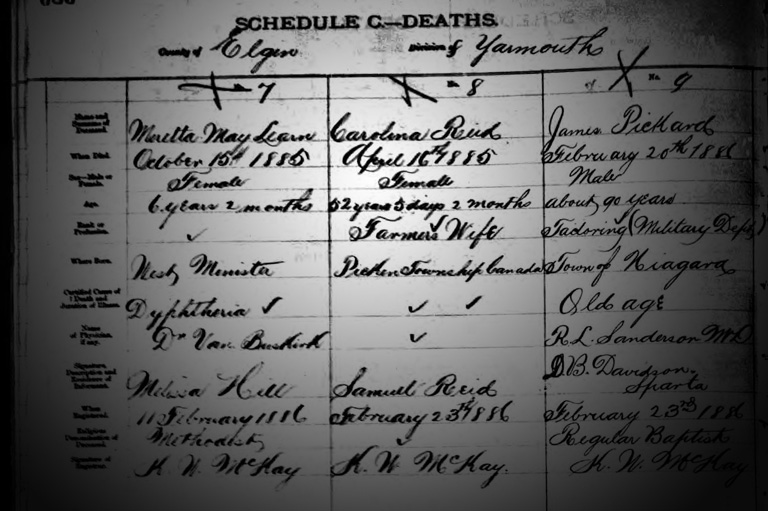 SCHEDULE C.—DEATHS.
County of Elgin Division of Yarmouth
7 8 No. 9
Muretta May Learn Carolina Reid James Pickard
When Died. October 15th 1885 April 16th 1885 February 20th 1886
Sex—Male or Female. Female Female Male
Age. 6 years 2 months 52 years 5 days 2 months about 90 years
Rank or Profession. ✓ Farmers Wife Tadoring (Military Dept)
Where Born. West Minister Picken Township Canada Town of Niagara
Certified Cause of Death and Duration of Illness. Dyphtheria ✓ ✓ ✓ Old age
Name of Physician, if any. Dr Van Buskirk ✓ R. L. Sanderson M.D.
Signature, Description and Residence of Informant. Melissa Hill Samuel Reid D. B. Davidson. Sparta
When Registered. 11 February 1886 February 23rd 1886 February 23rd 1886
Religious Denomination of Deceased. Methodist ✓ Regular Baptist
Signature of Registrar. K. W. McKay K. W. McKay. K. W. McKay